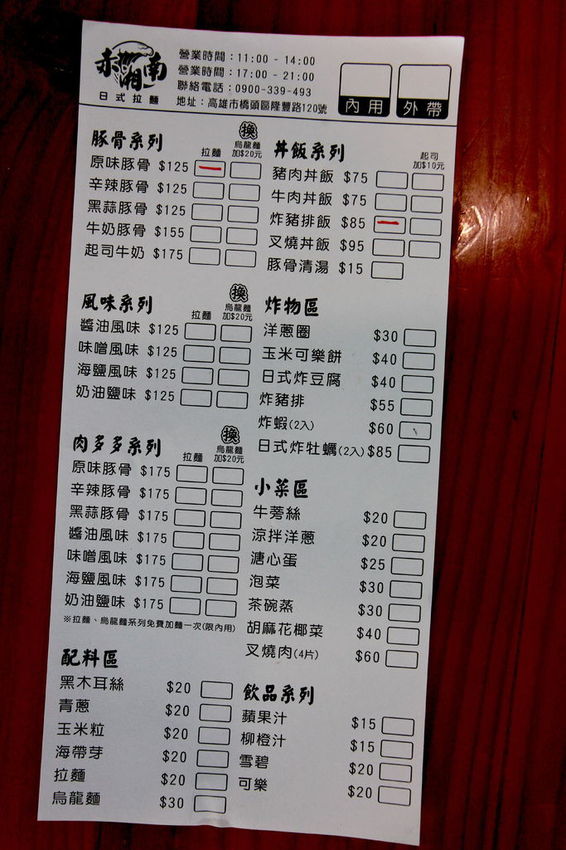 赤湘南
日式拉麵
營業時間：11:00 - 14:00
營業時間：17:00 - 21:00
聯絡電話：0900-339-493
地址：高雄市橋頭區隆豐路120號
內用
外帶
豚骨系列
拉麵
換
烏龍麵
加$20元
原味豚骨 $125
辛辣豚骨 $125
黑蒜豚骨 $125
牛奶豚骨 $155
起司牛奶 $175
丼飯系列
起司
加$10元
豬肉丼飯 $75
牛肉丼飯 $75
炸豬排飯 $85
叉燒丼飯 $95
豚骨清湯 $15
風味系列
拉麵
換
烏龍麵
加$20元
醬油風味 $125
味噌風味 $125
海鹽風味 $125
奶油鹽味 $125
炸物區
洋蔥圈 $30
玉米可樂餅 $40
日式炸豆腐 $40
炸豬排 $55
炸蝦(2入) $60
日式炸牡蠣(2入) $85
肉多多系列
拉麵
換
烏龍麵
加$20元
原味豚骨 $175
辛辣豚骨 $175
黑蒜豚骨 $175
醬油風味 $175
味噌風味 $175
海鹽風味 $175
奶油鹽味 $175
※拉麵、烏龍麵系列免費加麵一次(限內用)
小菜區
牛蒡絲 $20
涼拌洋蔥 $20
溏心蛋 $25
泡菜 $30
茶碗蒸 $30
胡麻花椰菜 $40
叉燒肉(4片) $60
配料區
黑木耳絲 $20
青蔥 $20
玉米粒 $20
海帶芽 $20
拉麵 $20
烏龍麵 $30
飲品系列
蘋果汁 $15
柳橙汁 $15
雪碧 $20
可樂 $20